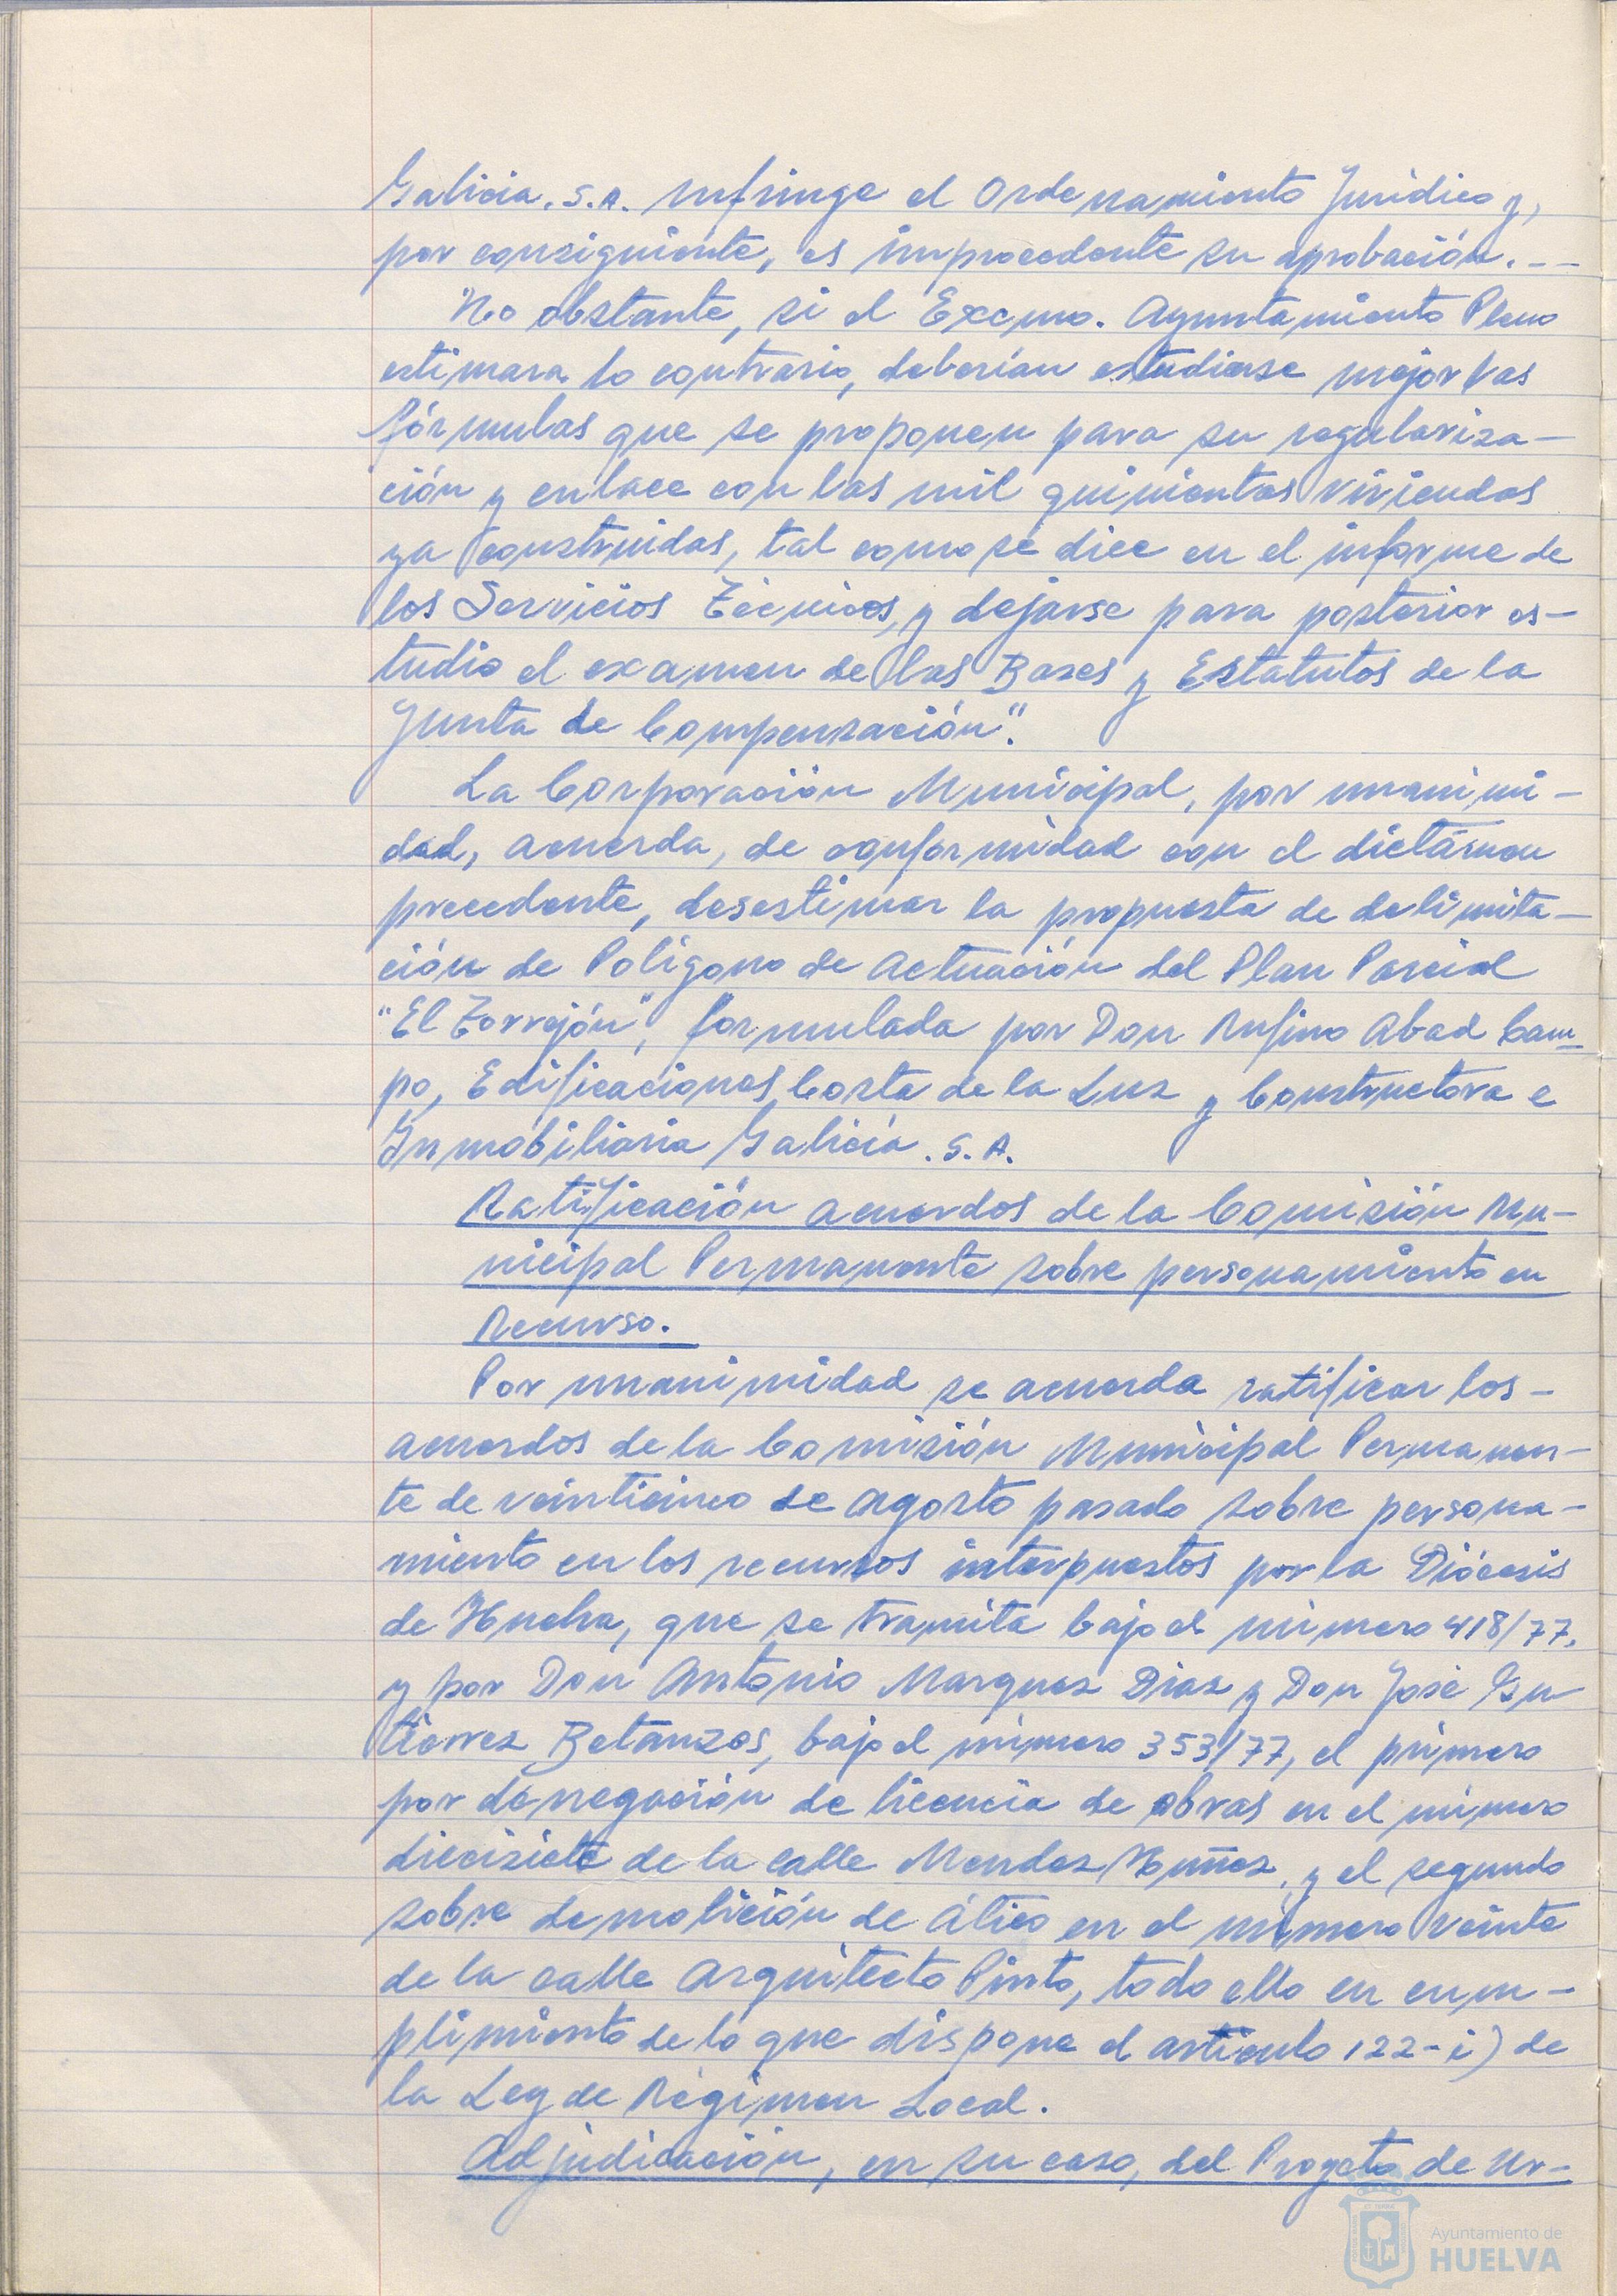 Galicia. S.A. infringe el Ordenamiento Jurídico y,
por consiguiente, es improcedente su aprobación. --
No obstante, si el Excmo. Ayuntamiento Pleno
estimara lo contrario, deberían estudiarse mejor las
fórmulas que se proponen para su regulariza-
ción y enlace con las mil quinientas viviendas
ya construidas, tal como se dice en el informe de
los Servicios Técnicos, y dejarse para posterior es-
tudio el examen de las Bases y Estatutos de la
Junta de Compensación".
La Corporación Municipal, por unanimi-
dad, acuerda, de conformidad con el dictámen
precedente, desestimar la propuesta de delimita-
ción de Polígono de Actuación del Plan Parcial
"El Torrejón", formulada por Don Rufino Abad Cam-
po, Edificaciones Costa de la Luz y Constructora e
Inmobiliaria Galicia. S.A.
Ratificación acuerdos de la Comisión Mu-
nicipal Permanente sobre personamiento en
Recurso.
Por unanimidad se acuerda ratificar los-
acuerdos de la Comisión Municipal Permanen-
te de veinticinco de agosto pasado sobre persona-
miento en los recursos interpuestos por la Diócesis
de Huelva, que se tramita bajo el número 418/77,
y por Don Antonio Marquez Diaz y Don José Gu
tierrez Betanzos, bajo el número 353/77, el primero
por denegación de licencia de obras en el número
diecisiete de la calle Mendez Nuñez, y el segundo
sobre demolición de ático en el número veinte
de la calle Arquitecto Pinto, todo ello en cum-
plimiento de lo que dispone el artículo 122-i) de
la Ley de Régimen Local.
Adjudicación, en su caso, del Proyecto de Ur-
Ayuntamiento de
HUELVA